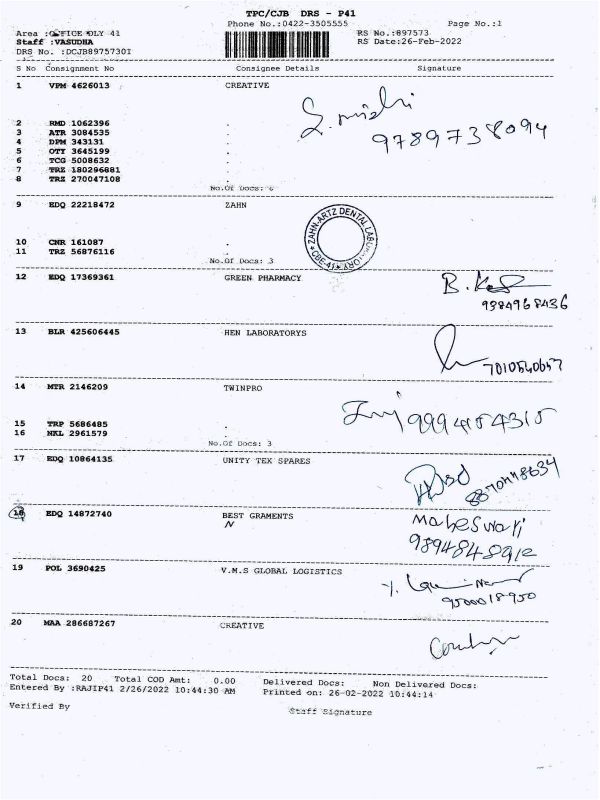 TPC/CJB DRS - P41
Phone No.:0422-3505555 Page No.:1
Area :OFFICE DLY 41 RS No.:897573
Staff :VASUDHA RS Date:26-Feb-2022
DRS No. :DCJB8975730I
S No Consignment No Consignee Details Signature
1 VPM 4626013 CREATIVE
2 RMD 1062396 .
9789738094
3 ATR 3084535 .
4 DPM 343131 .
5 OTT 3645199 .
6 TCG 5008632 .
7 TRZ 180296881 .
8 TRZ 270047108 .
No.Of Docs:
9 EDQ 22218472 ZAHN
ZAHN-ARTZ DENTAL LABORATORY
CBE-41
10 CNR 161087 .
11 TRZ 56876116 .
No.Of Docs: 3
12 EDQ 17369361 GREEN PHARMACY
9384968436
13 BLR 425606445 HEN LABORATORYS
7010540657
14 MTR 2146209 TWINPRO
9994154315
15 TRP 5686485 .
16 NKL 2961579 .
No.Of Docs: 3
17 EDQ 10864135 UNITY TEX SPARES
18 EDQ 14872740 BEST GRAMENTS
N
Maheswari
9894848912
19 POL 3690425 V.M.S GLOBAL LOGISTICS
9500018950
20 MAA 286687267 CREATIVE
Total Docs: 20 Total COD Amt: 0.00 Delivered Docs: Non Delivered Docs:
Entered By :RAJIP41 2/26/2022 10:44:30 AM Printed on: 26-02-2022 10:44:14
Verified By Staff Signature